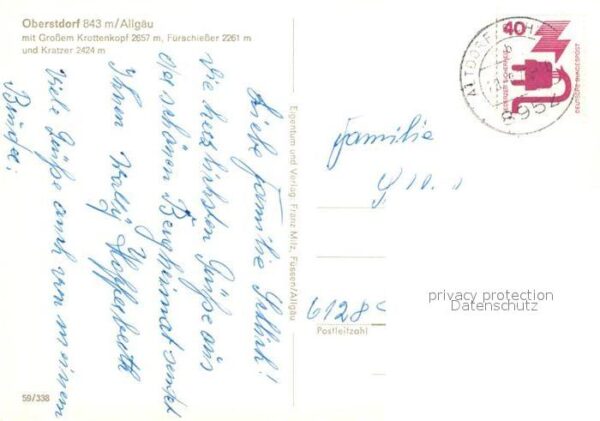 Oberstdorf 843 m/Allgäu
mit Großem Krottenkopf 2657 m, Fürschießer 2261 m
und Kratzer 2424 m
Liebe Familie
Die herzlichsten Grüße aus
der schönen Bergheimat sendet
Ihnen Wally
Viele Grüße auch von meinem
Eigentum und Verlag Franz Milz, Füssen/Allgäu
59/338
40
DEUTSCHE BUNDESPOST
8957
Familie
6128
Postleitzahl
privacy protection
Datenschutz